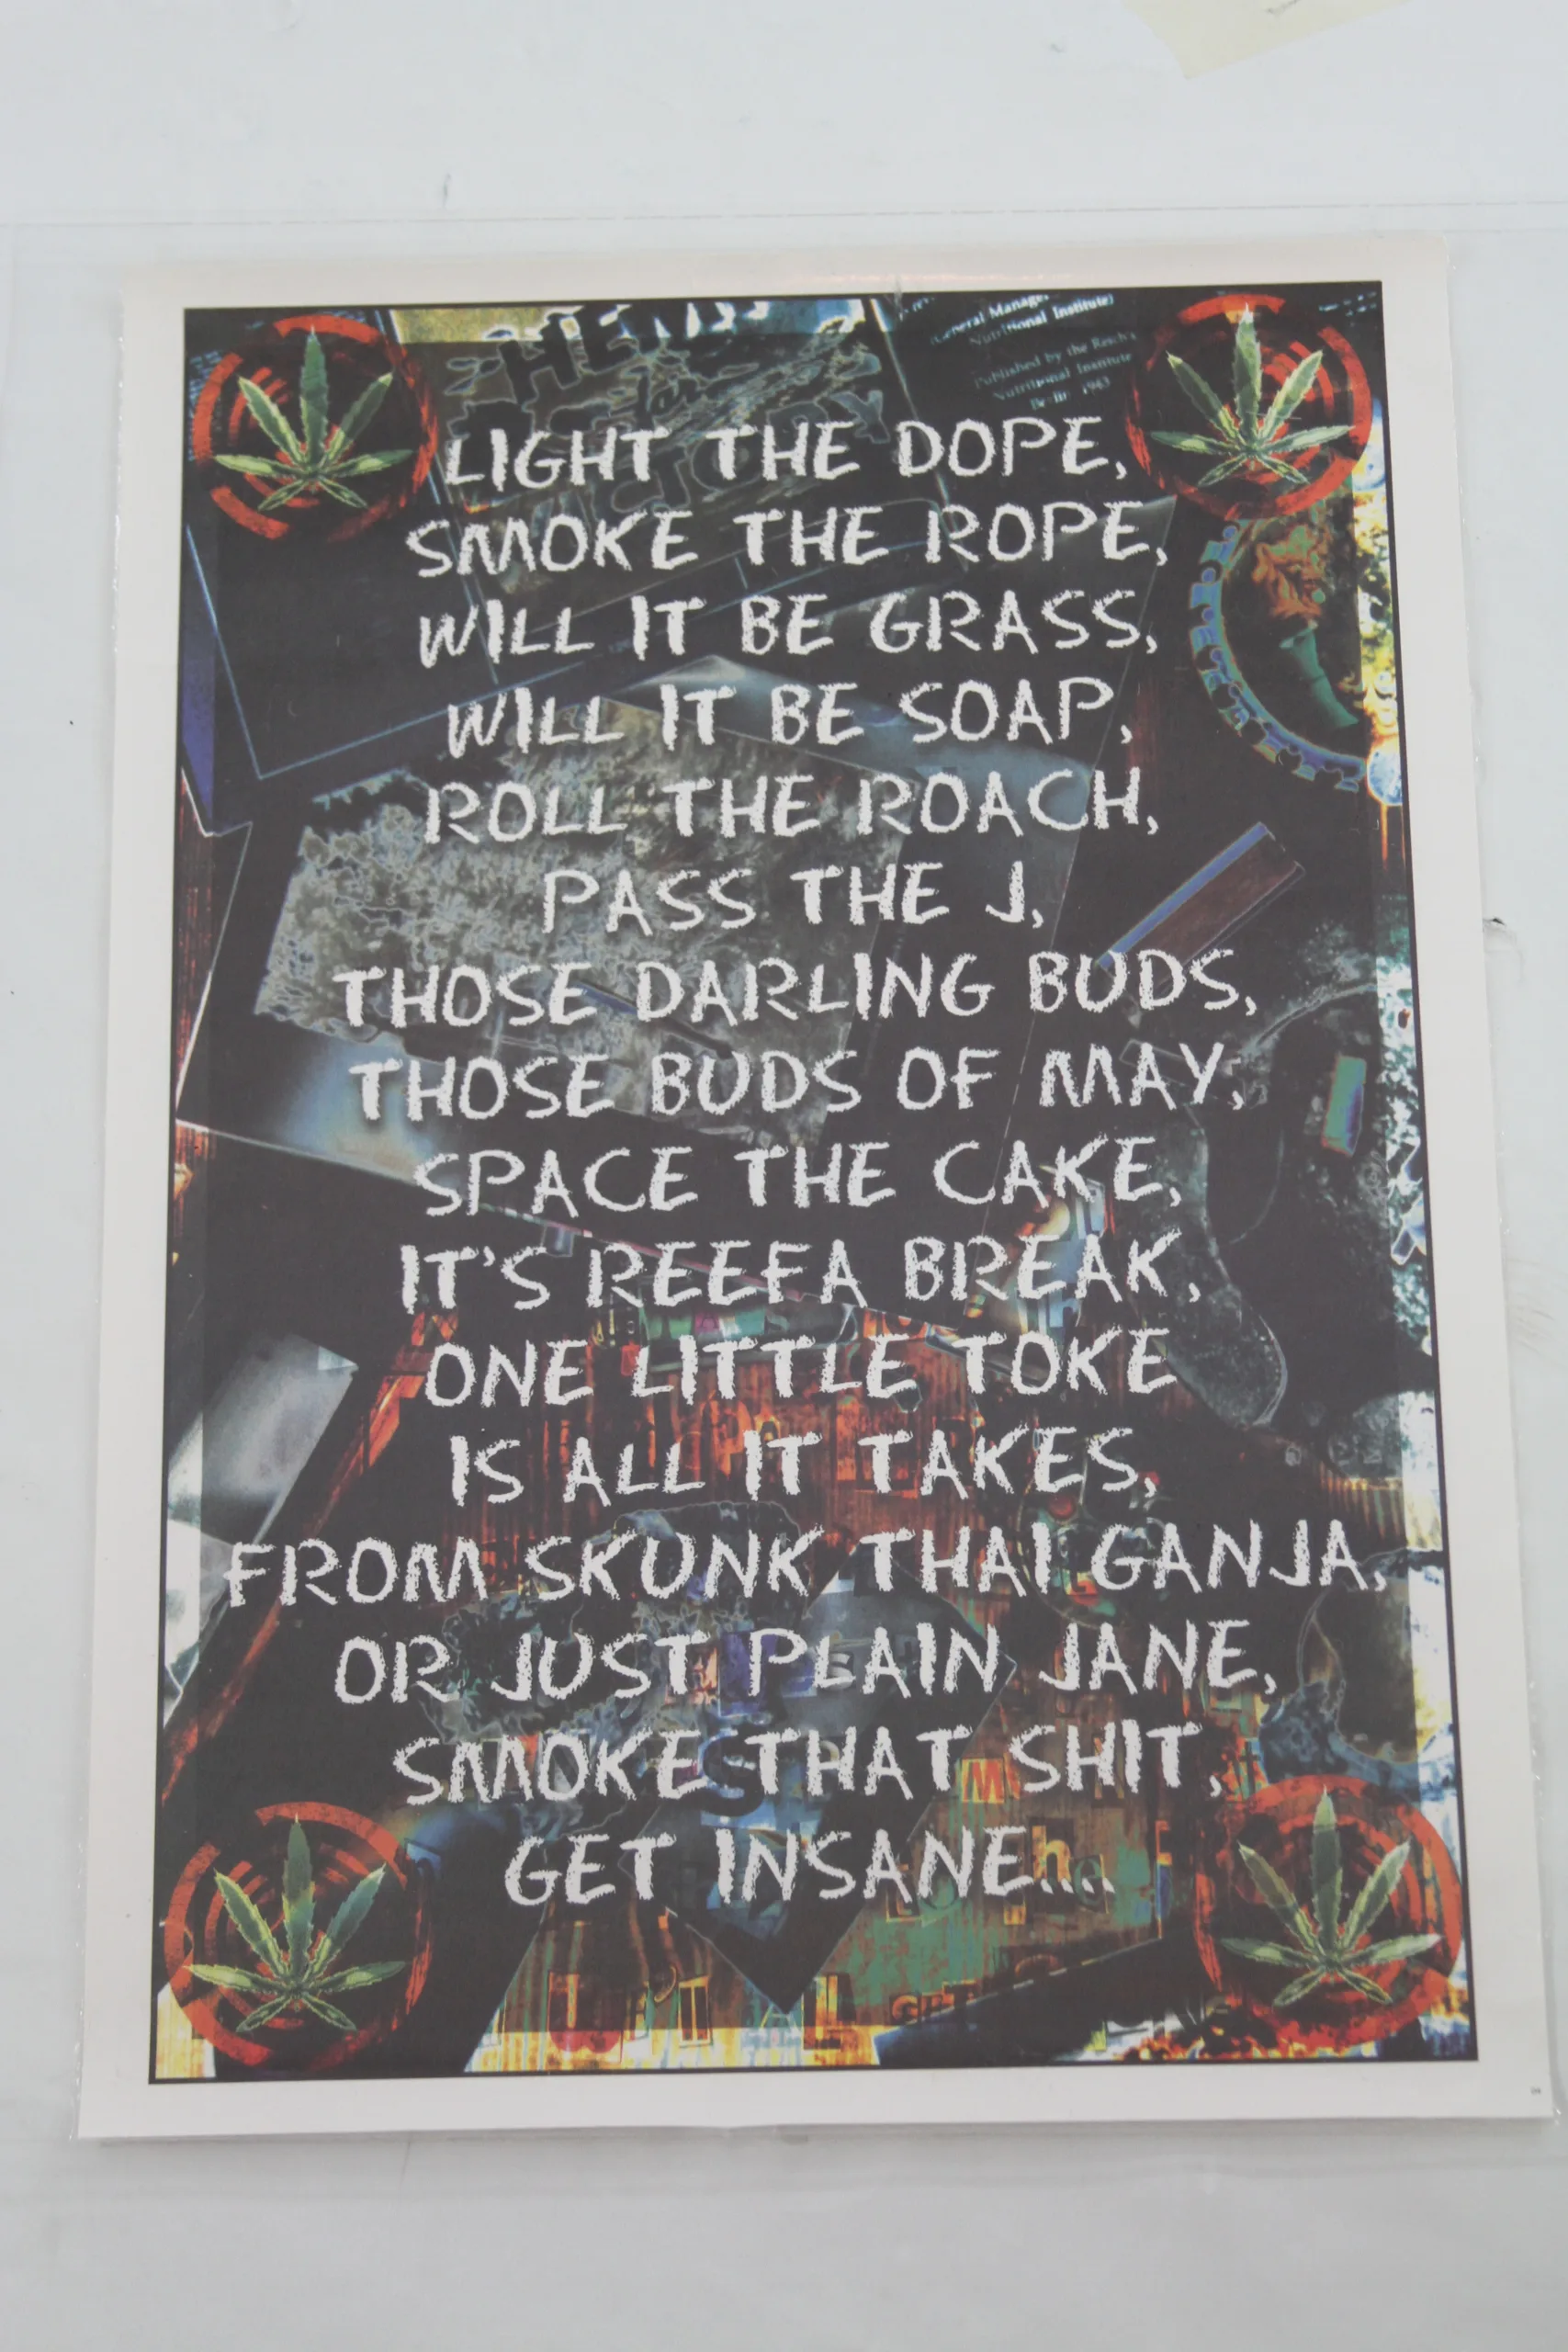 General Manager
Nutritional Institute)
Published by the Reich's
Nutritional Institute
Berlin 1943
LIGHT THE DOPE,
SMOKE THE ROPE,
WILL IT BE GRASS,
WILL IT BE SOAP,
ROLL THE ROACH,
PASS THE J,
THOSE DARLING BUDS,
THOSE BUDS OF MAY,
SPACE THE CAKE,
IT'S REEFA BREAK,
ONE LITTLE TOKE
IS ALL IT TAKES,
FROM SKUNK THAI GANJA,
OR JUST PLAIN JANE,
SMOKE THAT SHIT,
GET INSANE....